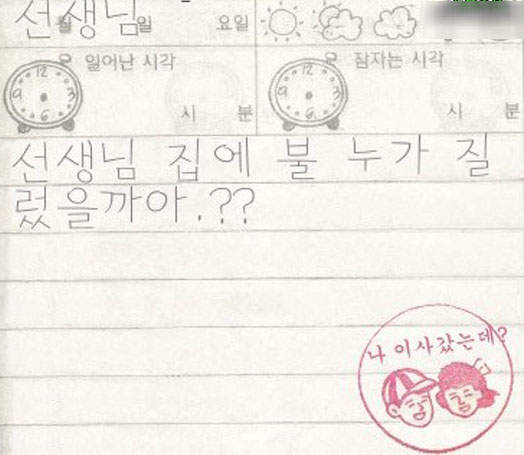 선생님
월 일 요일
일어난 시각 잠자는 시각
12 3 6 9 12 3 6 9
시 분 시 분
선생님 집에 불 누가 질
렀을까아.??
나 이사갔는데?